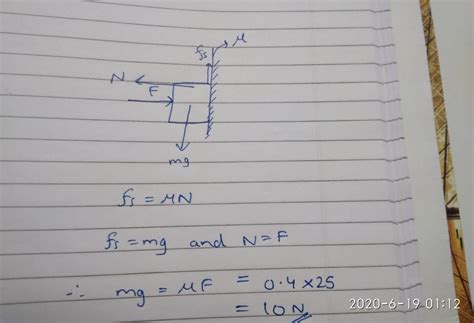 fs μ
N
F
mg
fs = μN
fs = mg and N = F
∴ mg = μF = 0.4 × 25
= 10N
2020-6-19 01:12